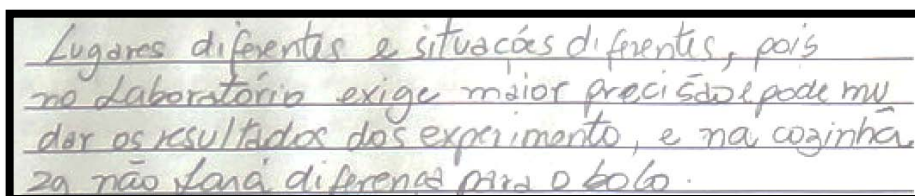 Lugares diferentes e situações diferentes, pois
no Laboratório exige maior precisão e pode mu
dar os resultados dos experimento, e na cozinha
2g não fará diferença para o bolo.